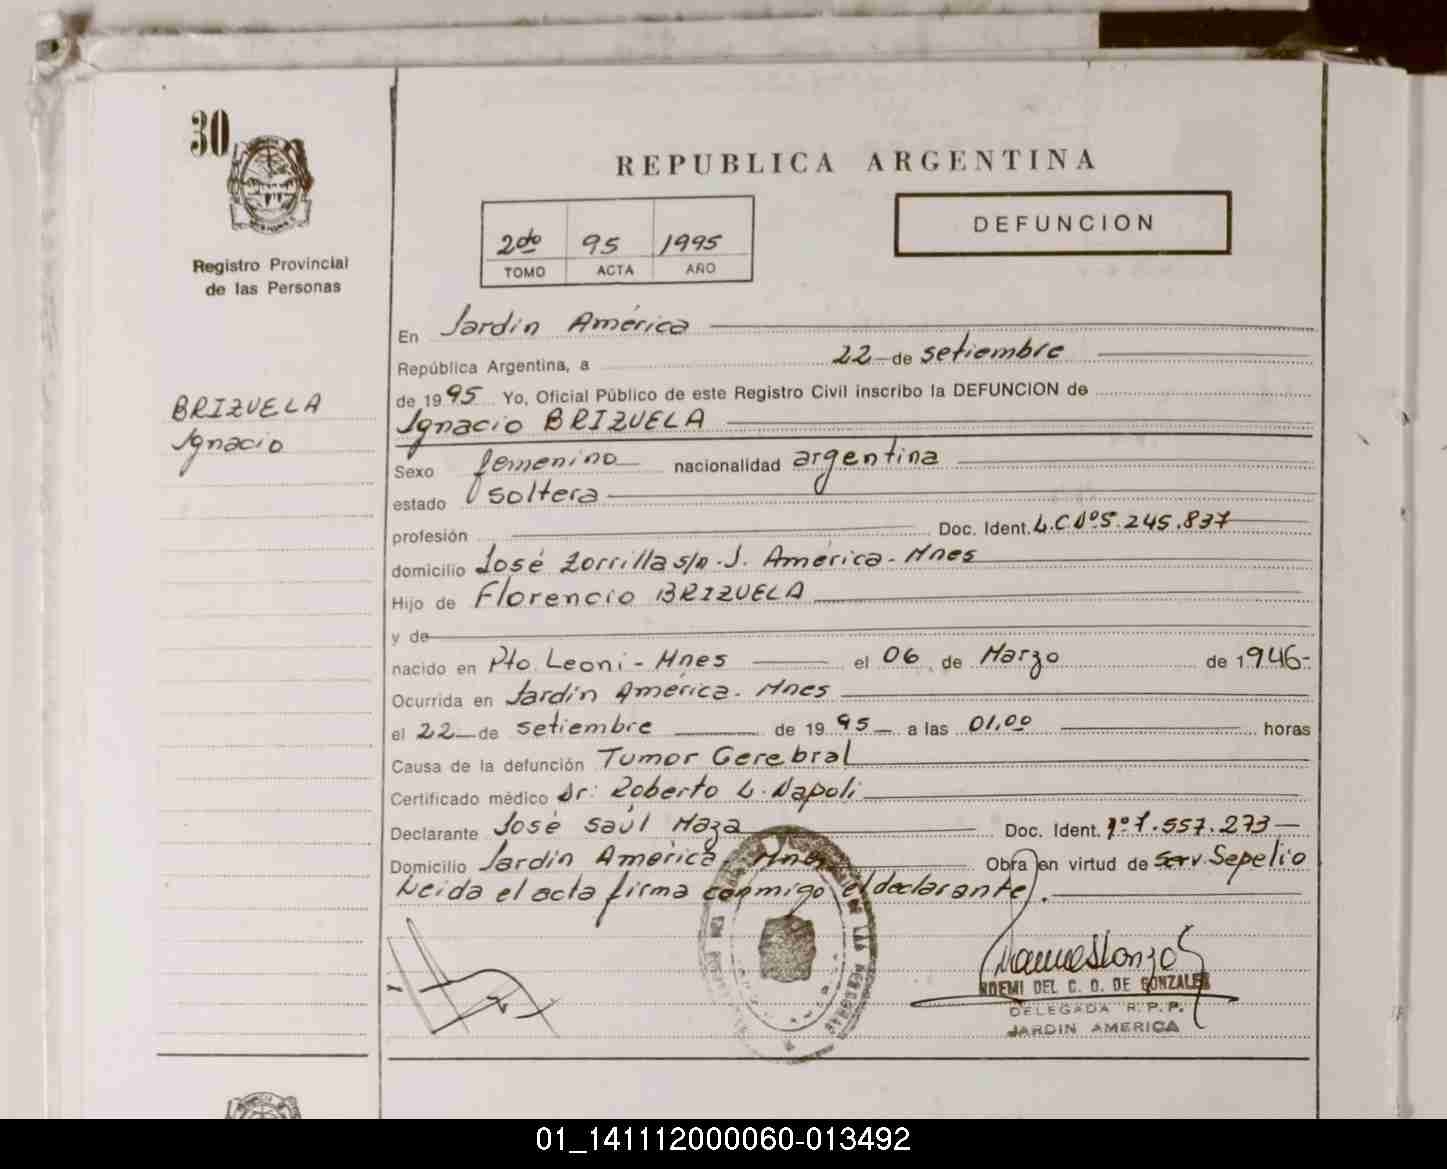 30
REPUBLICA ARGENTINA
2do 95 1995
TOMO ACTA AÑO
DEFUNCION
Registro Provincial
de las Personas
BRIZUELA
Ignacio
En Jardín América
República Argentina, a 22 de setiembre
de 1995 Yo, Oficial Público de este Registro Civil inscribo la DEFUNCION de
Ignacio BRIZUELA
Sexo femenino nacionalidad argentina
estado soltera
profesión Doc. Ident. L.C.Nº5.245.837
domicilio José Zorrilla s/n. J. América - Mnes
Hijo de Florencio BRIZUELA
y de
nacido en Pto. Leoni - Mnes el 06 de Marzo de 1946-
Ocurrida en Jardín América. Mnes
el 22 de setiembre de 1995 a las 01,00 horas
Causa de la defunción Tumor Cerebral
Certificado médico Dr: Roberto L. Napoli
Declarante José Saúl Maza Doc. Ident. Nº7.557.273
Domicilio Jardín América. Mnes Obra en virtud de Serv. Sepelio
Leida el acta firma conmigo el declarante.
NOEMI DEL C. O. DE GONZALEZ
DELEGADA R.P.P.
JARDIN AMERICA
01_141112000060-013492